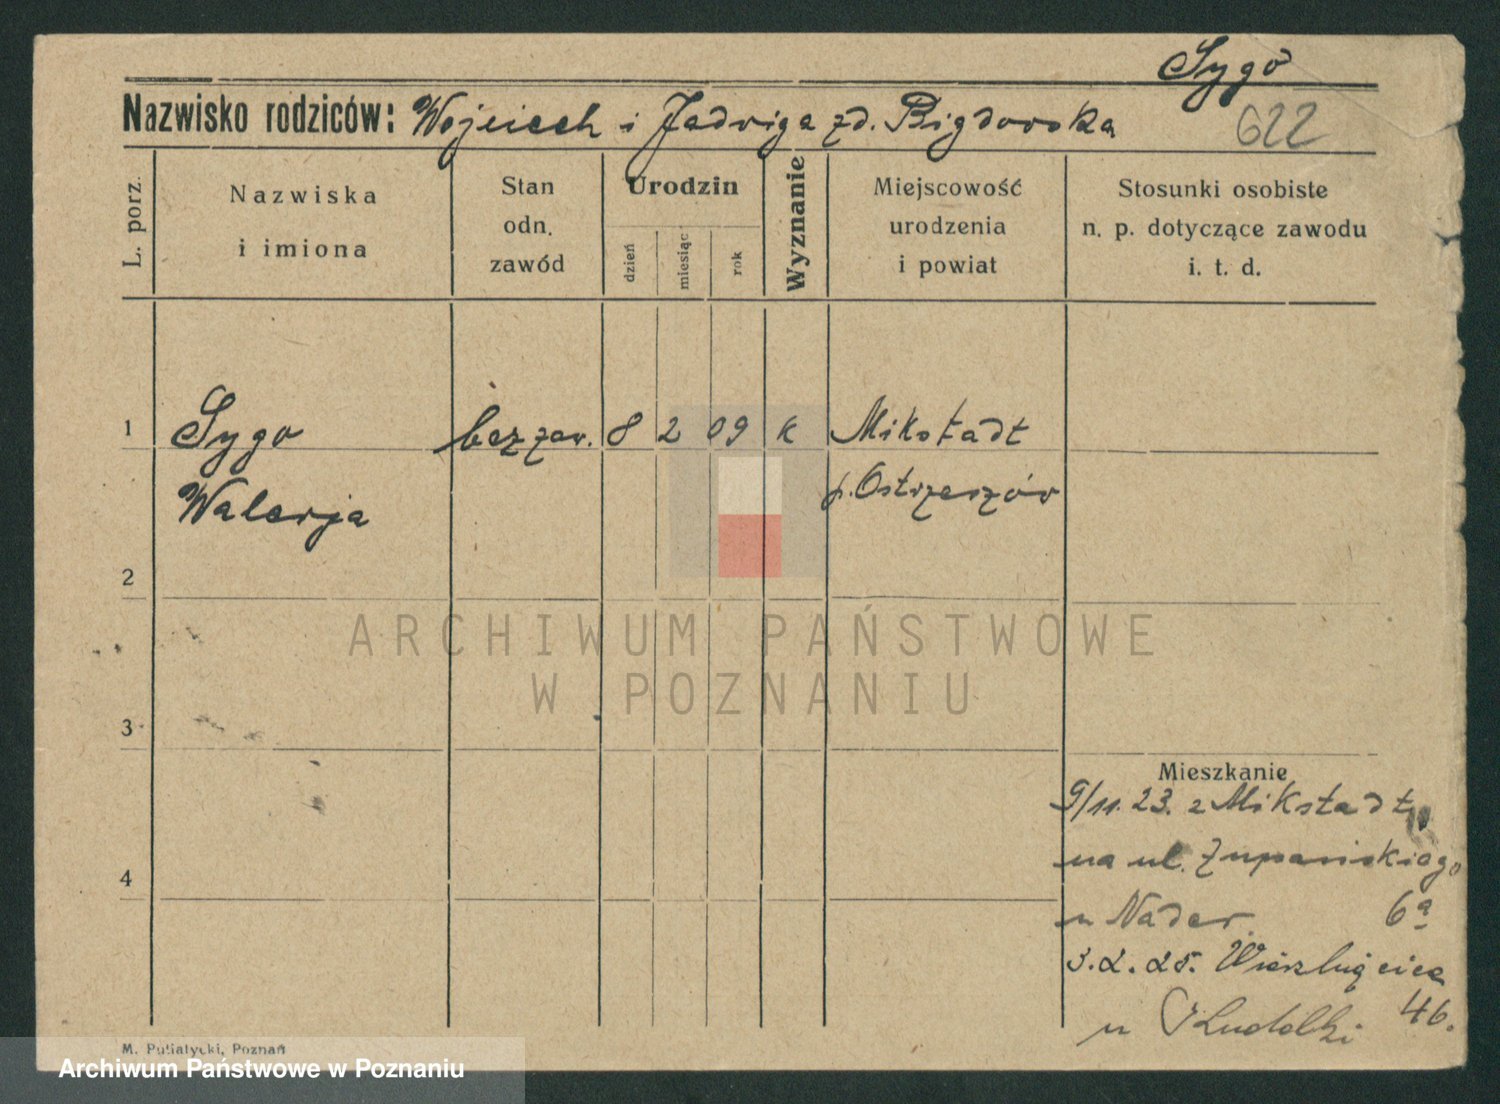 Sygo
Nazwisko rodziców: Wojciech i Jadwiga zd. Bigdowska
622
L. porz.
Nazwiska
i imiona
Stan
odn.
zawód
Urodzin
dzień
miesiąc
rok
Wyznanie
Miejscowość
urodzenia
i powiat
Stosunki osobiste
n. p. dotyczące zawodu
i. t. d.
1 Sygo bez zaw. 8 2 09 K Mikstadt
Walerja p. Ostrzeszów
2
ARCHIWUM PAŃSTWOWE
W POZNANIU
3
Mieszkanie
9/11. 23. z Mikstadt
na ul.
4
u Nader. 6a
3.2.25. Wierzbięcice
u 46.
M. Putiatycki, Poznań
Archiwum Państwowe w Poznaniu